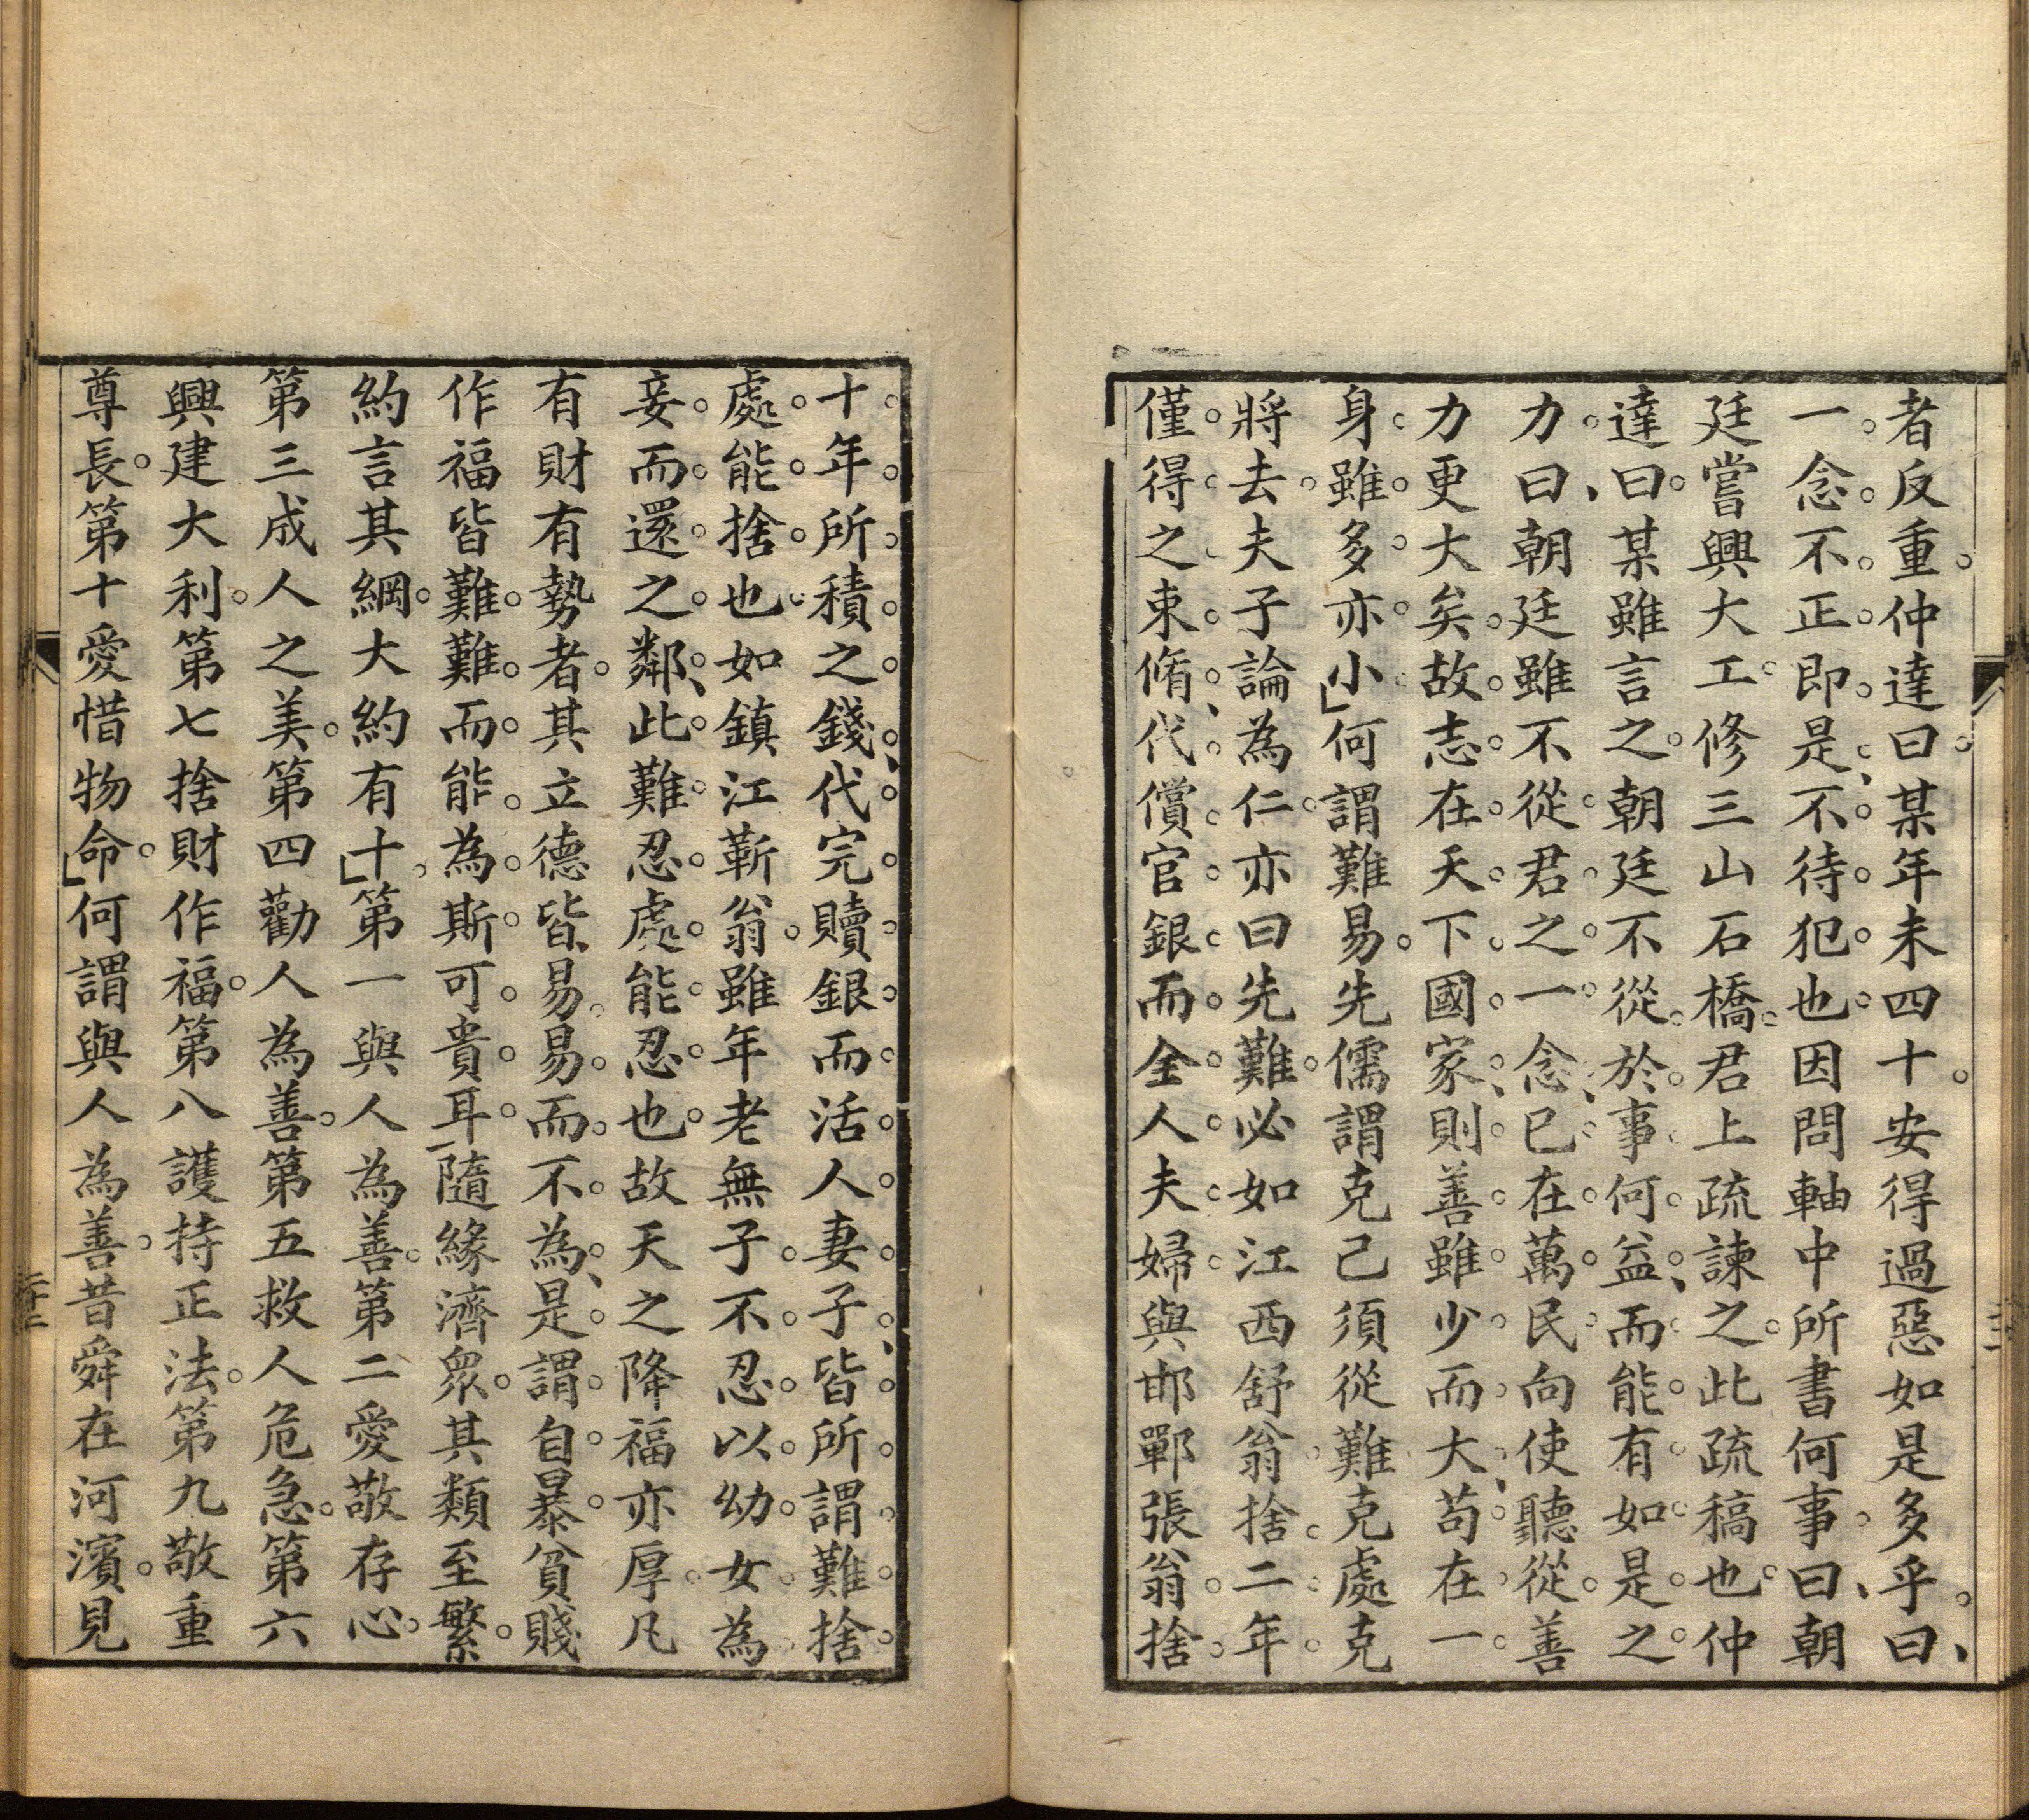 者反重仲達曰某年未四十安得過惡如是多乎曰
一念不正即是不待犯也因問軸中所書何事曰朝
廷嘗興大工修三山石橋君上疏諫之此疏稿也仲
達曰某雖言之朝廷不從於事何益而能有如是之
力曰朝廷雖不從君之一念已在萬民向使聽從善
力更大矣故志在天下國家則善雖少而大苟在一
身雖多亦小何謂難易先儒謂克己須從難克處克
將去夫子論為仁亦曰先難必如江西舒翁捨二年
僅得之束脩代償官銀而全人夫婦與邯鄲張翁捨
十年所積之錢代完贖銀而活人妻子皆所謂難捨
處能捨也如鎮江靳翁雖年老無子不忍以幼女為
妾而還之鄰此難忍處能忍也故天之降福亦厚凡
有財有勢者其立德皆易易而不為是謂自暴貧賤
作福皆難難而能為斯可貴耳隨緣濟眾其類至繁
約言其綱大約有十第一與人為善第二愛敬存心
第三成人之美第四勸人為善第五救人危急第六
興建大利第七捨財作福第八護持正法第九敬重
尊長第十愛惜物命何謂與人為善昔舜在河濱見